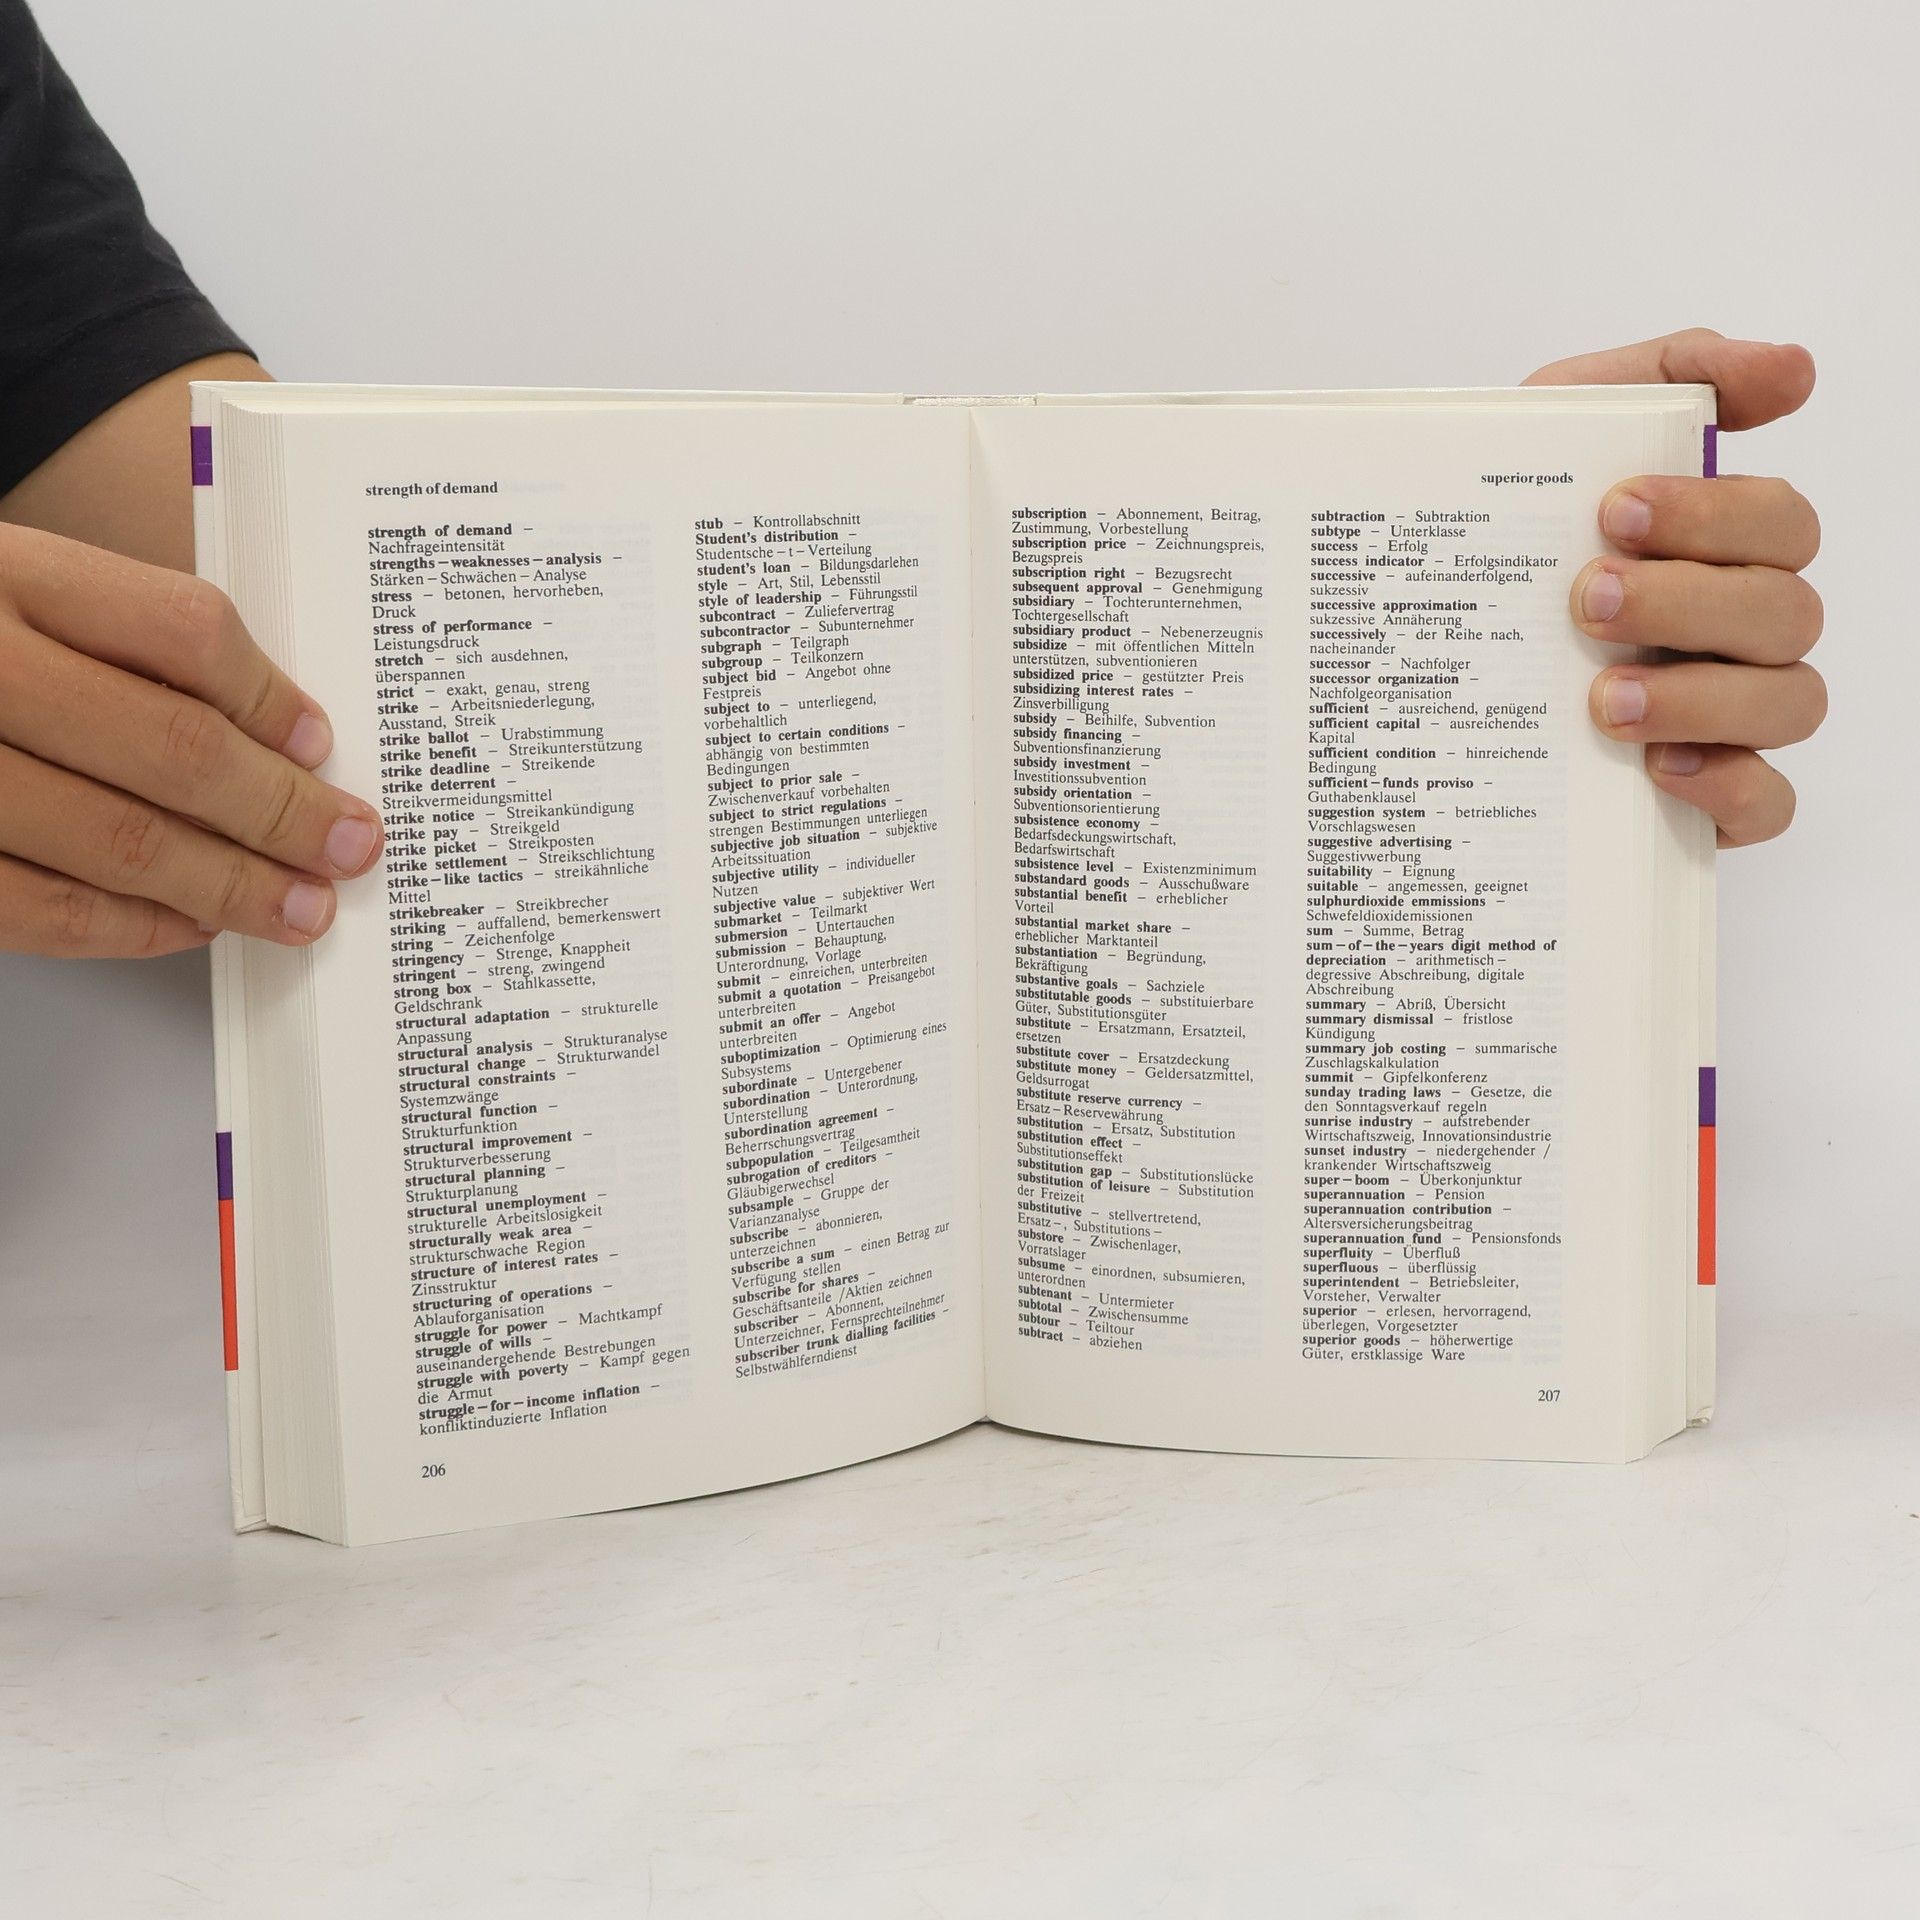 strength of demand
strength of demand –
Nachfrageintensität
strengths–weaknesses–analysis –
Stärken–Schwächen–Analyse
stress – betonen, hervorheben,
Druck
stress of performance –
Leistungsdruck
stretch – sich ausdehnen,
überspannen
strict – exakt, genau, streng
strike – Arbeitsniederlegung,
Ausstand, Streik
strike ballot – Urabstimmung
strike benefit – Streikunterstützung
strike deadline – Streikende
strike deterrent –
Streikvermeidungsmittel
strike notice – Streikankündigung
strike pay – Streikgeld
strike picket – Streikposten
strike settlement – Streikschlichtung
strike–like tactics – streikähnliche
Mittel
strikebreaker – Streikbrecher
striking – auffallend, bemerkenswert
string – Zeichenfolge
stringency – Strenge, Knappheit
stringent – streng, zwingend
strong box – Stahlkassette,
Geldschrank
structural adaptation – strukturelle
Anpassung
structural analysis – Strukturanalyse
structural change – Strukturwandel
structural constraints –
Systemzwänge
structural function –
Strukturfunktion
structural improvement –
Strukturverbesserung
structural planning –
Strukturplanung
structural unemployment –
strukturelle Arbeitslosigkeit
structurally weak area –
strukturschwache Region
structure of interest rates –
Zinsstruktur
structuring of operations –
Ablauforganisation
struggle for power – Machtkampf
struggle of wills –
auseinandergehende Bestrebungen
struggle with poverty – Kampf gegen
die Armut
struggle–for–income inflation –
konfliktinduzierte Inflation
stub – Kontrollabschnitt
Student's distribution –
Studentsche–t–Verteilung
student's loan – Bildungsdarlehen
style – Art, Stil, Lebensstil
style of leadership – Führungsstil
subcontract – Zuliefervertrag
subcontractor – Subunternehmer
subgraph – Teilgraph
subgroup – Teilkonzern
subject bid – Angebot ohne
Festpreis
subject to – unterliegend,
vorbehaltlich
subject to certain conditions –
abhängig von bestimmten
Bedingungen
subject to prior sale –
Zwischenverkauf vorbehalten
subject to strict regulations –
strengen Bestimmungen unterliegen
subjective job situation – subjektive
Arbeitssituation
subjective utility – individueller
Nutzen
subjective value – subjektiver Wert
submarket – Teilmarkt
submersion – Untertauchen
submission – Behauptung,
Unterordnung, Vorlage
submit – einreichen, unterbreiten
submit a quotation – Preisangebot
unterbreiten
submit an offer – Angebot
unterbreiten
suboptimization – Optimierung eines
Subsystems
subordinate – Untergebener
subordination – Unterordnung,
Unterstellung
subordination agreement –
Beherrschungsvertrag
subpopulation – Teilgesamtheit
subrogation of creditors –
Gläubigerwechsel
subsample – Gruppe der
Varianzanalyse
subscribe – abonnieren,
unterzeichnen
subscribe a sum – einen Betrag zur
Verfügung stellen
subscribe for shares –
Geschäftsanteile /Aktien zeichnen
subscriber – Abonnent,
Unterzeichner, Fernsprechteilnehmer
subscriber trunk dialling facilities –
Selbstwählferndienst
206
superior goods
subscription – Abonnement, Beitrag,
Zustimmung, Vorbestellung
subscription price – Zeichnungspreis,
Bezugspreis
subscription right – Bezugsrecht
subsequent approval – Genehmigung
subsidiary – Tochterunternehmen,
Tochtergesellschaft
subsidiary product – Nebenerzeugnis
subsidize – mit öffentlichen Mitteln
unterstützen, subventionieren
subsidized price – gestützter Preis
subsidizing interest rates –
Zinsverbilligung
subsidy – Beihilfe, Subvention
subsidy financing –
Subventionsfinanzierung
subsidy investment –
Investitionssubvention
subsidy orientation –
Subventionsorientierung
subsistence economy –
Bedarfsdeckungswirtschaft,
Bedarfswirtschaft
subsistence level – Existenzminimum
substandard goods – Ausschußware
substantial benefit – erheblicher
Vorteil
substantial market share –
erheblicher Marktanteil
substantiation – Begründung,
Bekräftigung
substantive goals – Sachziele
substitutable goods – substituierbare
Güter, Substitutionsgüter
substitute – Ersatzmann, Ersatzteil,
ersetzen
substitute cover – Ersatzdeckung
substitute money – Geldersatzmittel,
Geldsurrogat
substitute reserve currency –
Ersatz–Reservewährung
substitution – Ersatz, Substitution
substitution effect –
Substitutionseffekt
substitution gap – Substitutionslücke
substitution of leisure – Substitution
der Freizeit
substitutive – stellvertretend,
Ersatz–, Substitutions–
substore – Zwischenlager,
Vorratslager
subsume – einordnen, subsumieren,
unterordnen
subtenant – Untermieter
subtotal – Zwischensumme
subtour – Teiltour
subtract – abziehen
subtraction – Subtraktion
subtype – Unterklasse
success – Erfolg
success indicator – Erfolgsindikator
successive – aufeinanderfolgend,
sukzessiv
successive approximation –
sukzessive Annäherung
successively – der Reihe nach,
nacheinander
successor – Nachfolger
successor organization –
Nachfolgeorganisation
sufficient – ausreichend, genügend
sufficient capital – ausreichendes
Kapital
sufficient condition – hinreichende
Bedingung
sufficient–funds proviso –
Guthabenklausel
suggestion system – betriebliches
Vorschlagswesen
suggestive advertising –
Suggestivwerbung
suitability – Eignung
suitable – angemessen, geeignet
sulphurdioxide emmissions –
Schwefeldioxidemissionen
sum – Summe, Betrag
sum–of–the–years digit method of
depreciation – arithmetisch–
degressive Abschreibung, digitale
Abschreibung
summary – Abriß, Übersicht
summary dismissal – fristlose
Kündigung
summary job costing – summarische
Zuschlagskalkulation
summit – Gipfelkonferenz
sunday trading laws – Gesetze, die
den Sonntagsverkauf regeln
sunrise industry – aufstrebender
Wirtschaftszweig, Innovationsindustrie
sunset industry – niedergehender /
krankender Wirtschaftszweig
super–boom – Überkonjunktur
superannuation – Pension
superannuation contribution –
Altersversicherungsbeitrag
superannuation fund – Pensionsfonds
superfluity – Überfluß
superfluous – überflüssig
superintendent – Betriebsleiter,
Vorsteher, Verwalter
superior – erlesen, hervorragend,
überlegen, Vorgesetzter
superior goods – höherwertige
Güter, erstklassige Ware
207